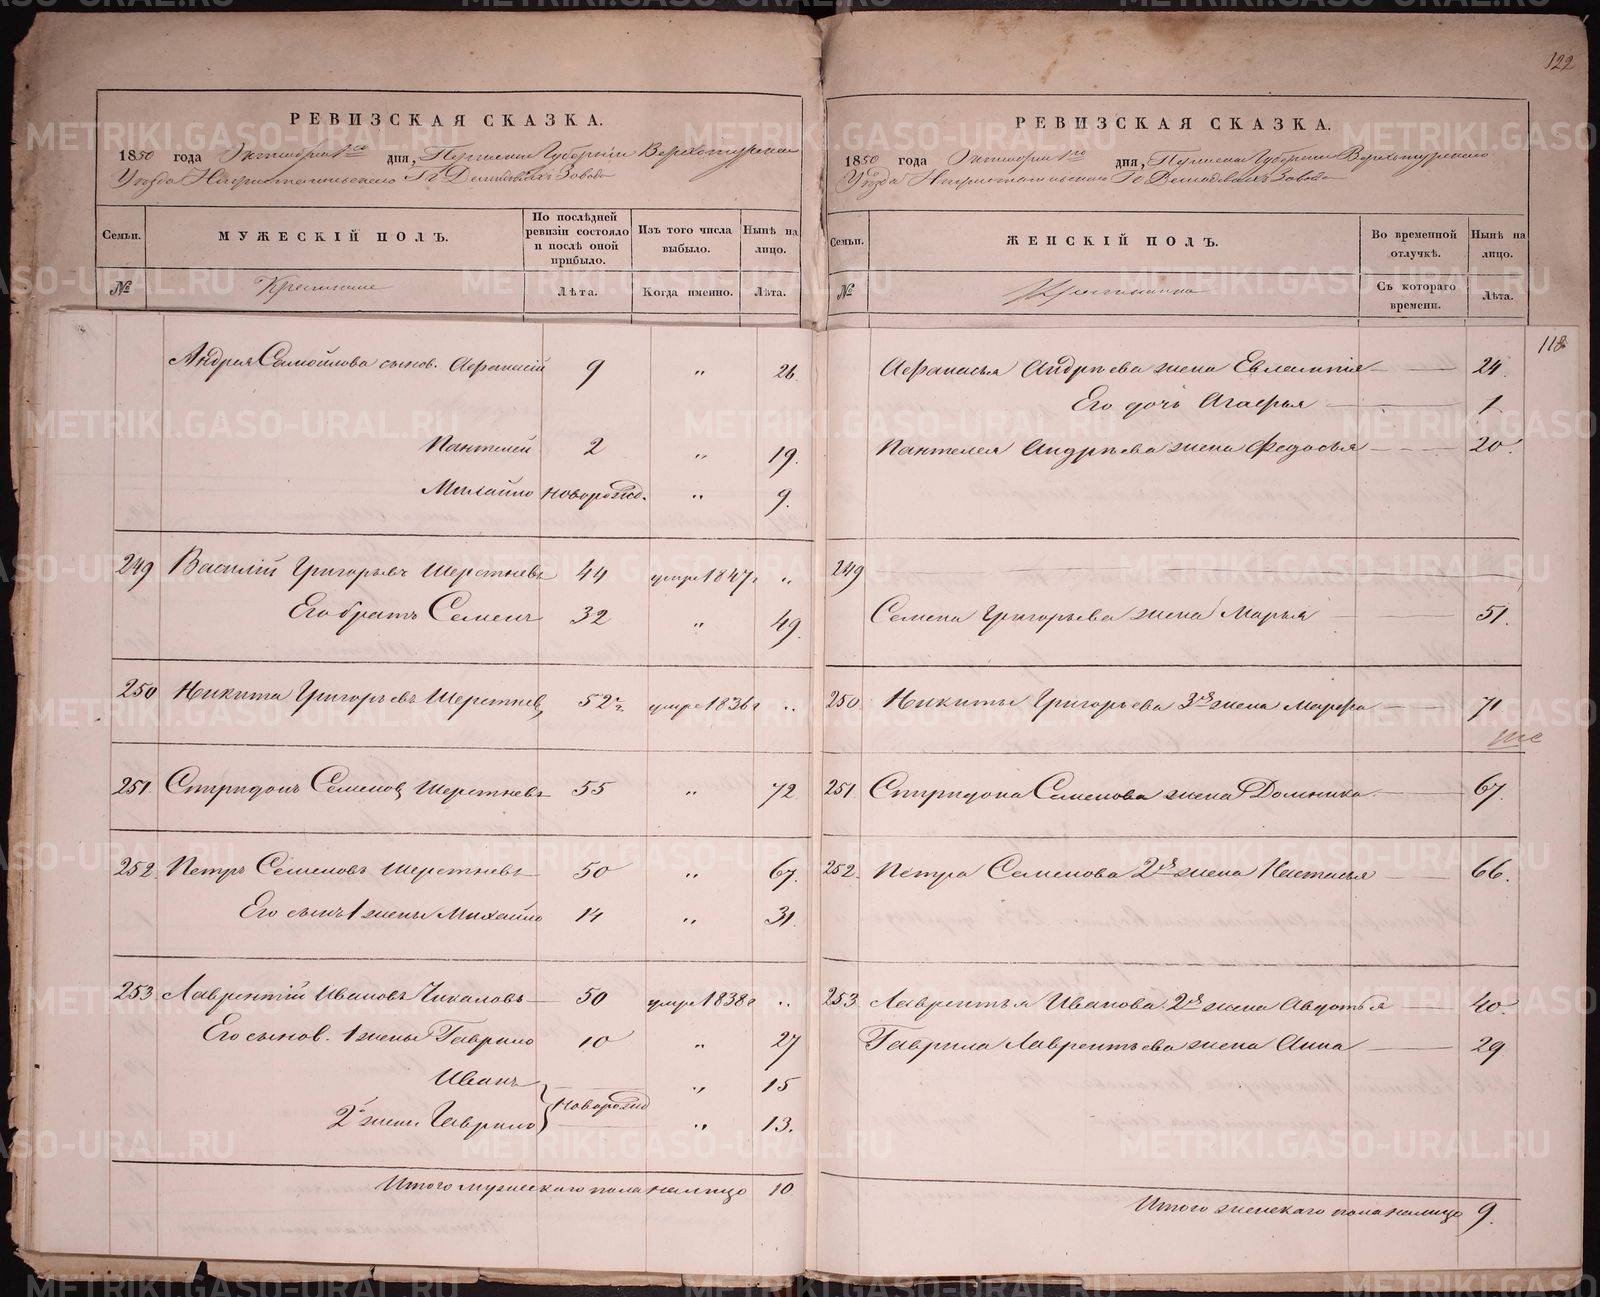 122
РЕВИЗСКАЯ СКАЗКА.
1850 года Октября 1го дня, Пермской Губерніи Верхотурскаго
Уѣзда Нижнетагильскаго Гг Демидовыхъ Завода
Семьи. МУЖЕСКІЙ ПОЛЪ. По послѣдней ревизіи состояло и послѣ оной прибыло. Изъ того числа выбыло. Нынѣ на лицо.
№ Крестьяне Лѣта. Когда именно. Лѣта.
Андрея Самойлова сынов. Афанасій 9 " 26.
Пантелей 2 " 19.
Михайло новорожд. " 9.
249 Василій Григорьевъ Шерстневъ 44 умре 1847г "
Его братъ Семенъ 32 " 49.
250 Никита Григорьевъ Шерстневъ 52 ½. умре 1836г "
251 Спиридонъ Семеновъ Шерстневъ 55 " 72
252. Петръ Семеновъ Шерстневъ 50 " 67.
Его сынъ 1 жены Михайло 14 " 31.
253 Лаврентій Ивановъ Чикаловъ 50 умре 1838г "
Его сынов. 1 жены Гаврило 10 " 27
Иванъ " 15
новорожд
2й жен. Гаврило " 13.
Итого мужескаго пола налицо 10
РЕВИЗСКАЯ СКАЗКА.
1850 года Октября 1го дня, Пермской Губерніи Верхотурскаго
Уѣзда Нижнетагильскаго Гг Демидовыхъ Завода
Семьи. ЖЕНСКІЙ ПОЛЪ. Во временной отлучкѣ. Нынѣ на лицо.
№ Съ котораго времени. Лѣта.
118
Афанасья Андрѣева жена Евлампія 24.
Его дочь Агафья 1
Пантелея Андрѣева жена Федосья 20.
249
Семена Григорьева жена Марья 51.
250. Никиты Григорьева 3я жена Марфа 71
251 Спиридона Семенова жена Домника 67.
252. Петра Семенова 2я жена Настасья 66.
253. Лаврентья Иванова 2я жена Авдотья 40.
Гаврила Лаврентьева жена Анна 29
Итого женскаго пола налицо 9.
METRIKI.GASO-URAL.RU